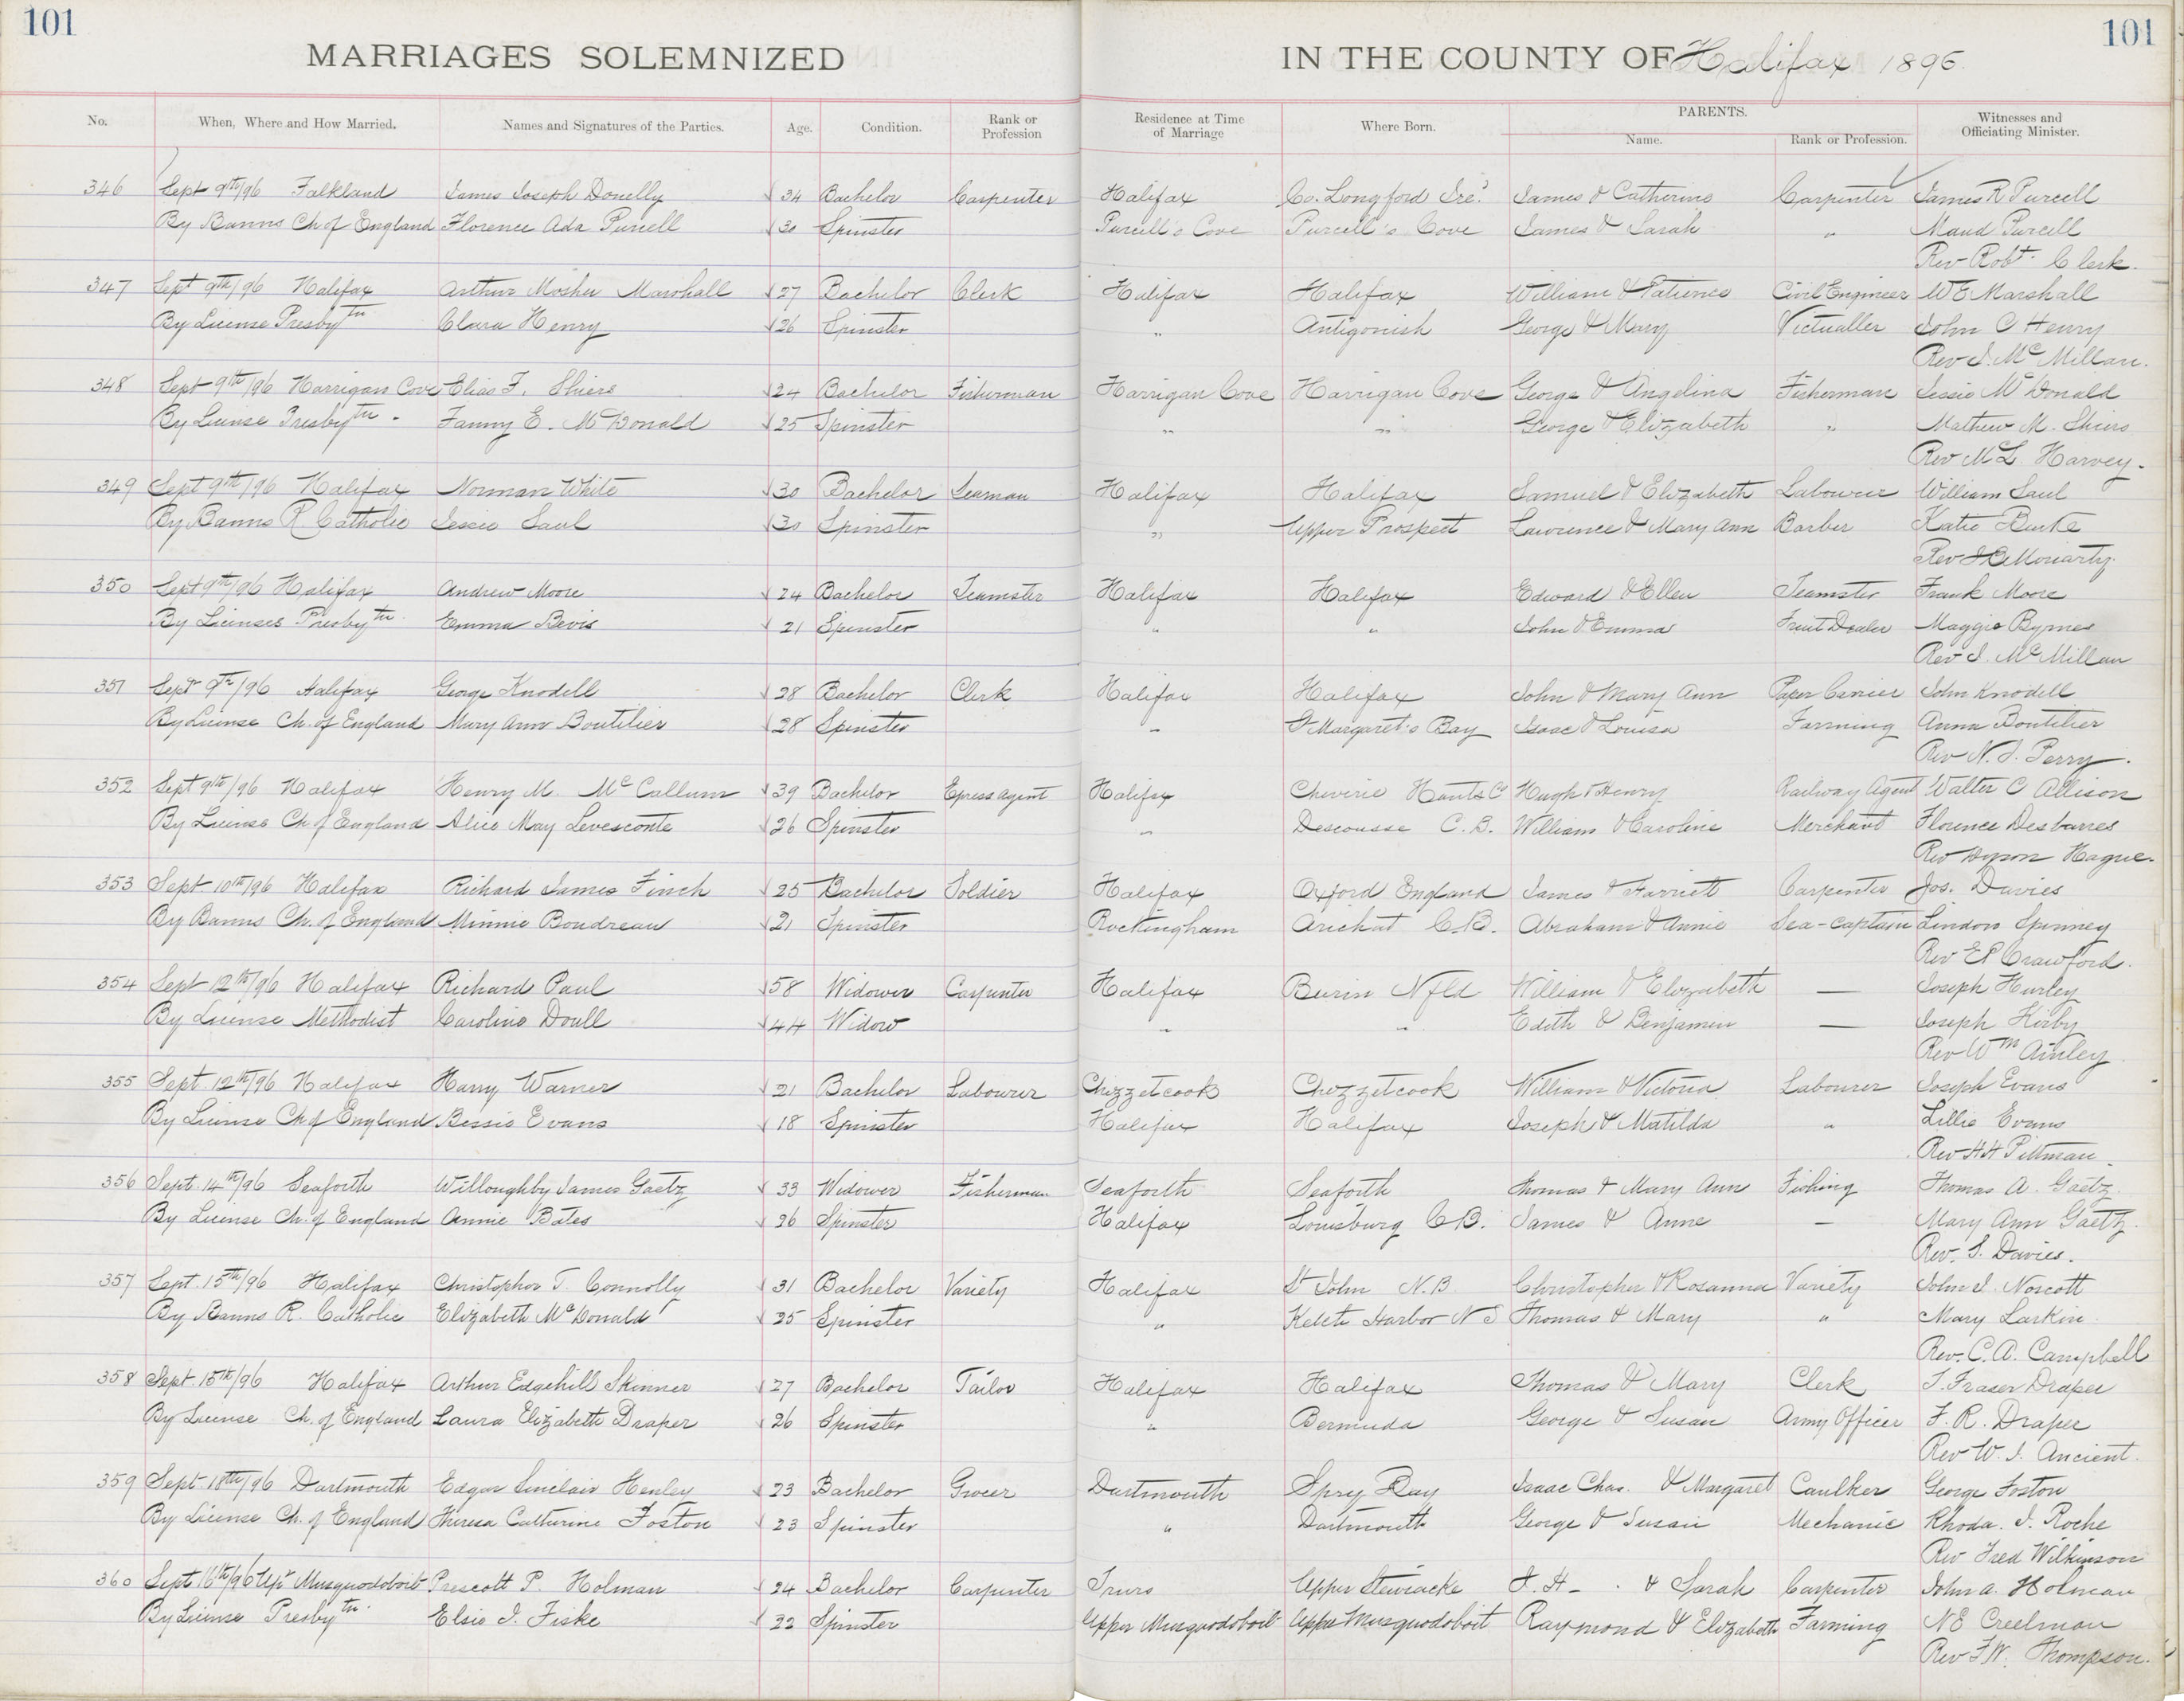 101 101
MARRIAGES SOLEMNIZED IN THE COUNTY OF Halifax 1896.
No. When, Where and How Married. Names and Signatures of the Parties. Age. Condition. Rank or Profession Residence at Time of Marriage Where Born. PARENTS. Name. Rank or Profession. Witnesses and Officiating Minister.
346 Sept 9th/96 Falkland James Joseph Donelly 34 Bachelor Carpenter Halifax Co. Longford Ire. James & Catherine Carpenter James R Purcell
By Banns Ch of England Florence Ada Purcell 30 Spinster Purcell's Cove Purcell's Cove James & Sarah " Maud Purcell
Rev Robt. Clerk.
347 Sept 9th/96 Halifax Arthur Mosher Marshall 27 Bachelor Clerk Halifax Halifax William & Patience Civil Engineer W E Marshall
By License Presbytn Clara Henry 26 Spinster " Antigonish George & Mary Victualler John C Henry
Rev J. McMillan.
348 Sept 9th/96 Harrigan Cove Elias F. Shiers 24 Bachelor Fisherman Harrigan Cove Harrigan Cove George & Angelina Fisherman Jessie McDonald
By License Presbytn - Fanny E. McDonald 25 Spinster " " George & Elizabeth " Mathew M. Shiers
Rev M L. Harvey.
349 Sept 9th/96 Halifax Norman White 30 Bachelor Seaman Halifax Halifax Samuel & Elizabeth Labourer William Saul
By Banns R. Catholic Jessie Saul 30 Spinster " Upper Prospect Lawrence & Mary Ann Barber Katie Burke
Rev Moriarty.
350 Sept 9th/96 Halifax Andrew Moore 24 Bachelor Teamster Halifax Halifax Edward & Ellen Teamster Frank Moore
By Licenses Presbytn. Emma Bevis 21 Spinster " " John & Emma Fruit Dealer Maggie Byrnes
Rev J. McMillan
351 Sept 9th/96 Halifax George Knodell 28 Bachelor Clerk Halifax Halifax John & Mary Ann Paper Carrier John Knodell
By License Ch. of England Mary Ann Boutilier 28 Spinster " St Margaret's Bay Isaac & Louisa Farming Anna Boutilier
Rev N. I. Perry.
352 Sept 9th/96 Halifax Henry M. McCallum 39 Bachelor Epress Agent Halifax Cheverie Hants Co Hugh & Henry Railway Agent Walter C Allison
By License Ch of England Alice May Levesconte 26 Spinster " Descousse C.B. William & Caroline Merchant Florence Desbarres
Rev Dyson Hague.
353 Sept 10th/96 Halifax Richard James Finch 25 Bachelor Soldier Halifax Oxford England James & Harriett Carpenter Jos. Davies
By Banns Ch. of England Minnie Boudreau 21 Spinster Rockingham Arichat C.B. Abraham & Annie Sea-captain Lindon Spinney
Rev E P Crawford.
354 Sept 12th/96 Halifax Richard Paul 58 Widower Carpenter Halifax Burin Nfld William & Elizabeth — Joseph Hurley
By License Methodist Caroline Doull 44 Widow " " Edith & Benjamin — Joseph Kirby
Rev Wm Ainley.
355 Sept. 12th/96 Halifax Harry Warner 21 Bachelor Labourer Chezzetcook Chezzetcook William & Victoria Labourer Joseph Evans
By License Ch of England Bessie Evans 18 Spinster Halifax Halifax Joseph & Matilda " Lillie Evans
Rev H H Pittman.
356 Sept. 14th/96 Seaforth Willoughby James Gaetz 33 Widower Fisherman Seaforth Seaforth Thomas & Mary Ann Fishing Thomas A. Gaetz.
By License Ch. of England Annie Bates 26 Spinster Halifax Louisburg C.B. James & Anne — Mary Ann Gaetz.
Rev. S. Davies.
357 Sept. 15th/96 Halifax Christopher T. Connolly 31 Bachelor Variety Halifax St John N.B Christopher & Rosanna Variety John J. Norcott
By Banns R. Catholic Elizabeth McDonald 25 Spinster " Ketch Harbor N S Thomas & Mary " Mary Larkin
Rev. C. A. Campbell
358 Sept. 15th/96 Halifax Arthur Edgehill Skinner 27 Bachelor Tailor Halifax Halifax Thomas & Mary Clerk T. Fraser Draper
By License Ch. of England Laura Elizabeth Draper 26 Spinster " Bermuda George & Susan Army Officer F. R. Draper
Rev W. J. Ancient.
359 Sept. 18th/96 Dartmouth Edgar Sinclair Henley 23 Bachelor Grocer Dartmouth Spry Bay Isaac Chas. & Margaret Caulker George Foston
By License Ch. of England Theresa Catherine Foston 23 Spinster " Dartmouth George & Susan Mechanic Rhoda. J. Roche
Rev Fred Wilkinson
360 Sept 16th/96 Upr Musquodoboit Prescott P. Holman 24 Bachelor Carpenter Truro Upper Stewiacke J. H- . & Sarah Carpenter John A. Holman
By License Presbytn. Elsie J. Fiske 22 Spinster Upper Musquodoboit Upper Musquodoboit Raymond & Elizabeth Farming N E Creelman
Rev F W. Thompson.